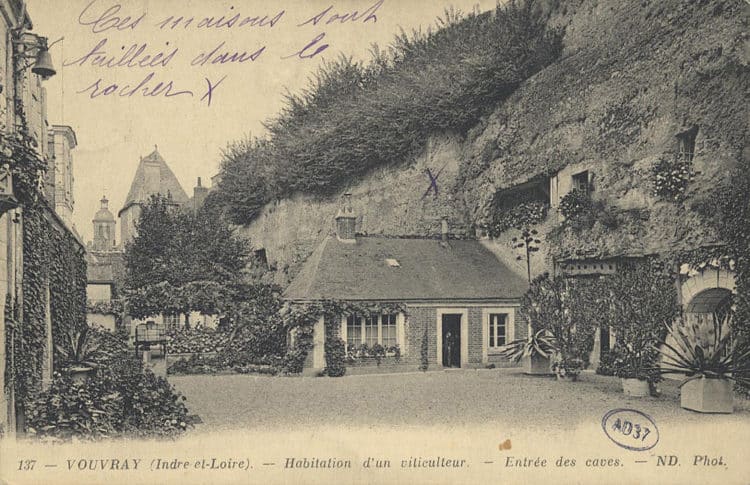 Ces maisons sont
taillées dans le
rocher X
X
AD37
137 - VOUVRAY (Indre-et-Loire). - Habitation d'un viticulteur. - Entrée des caves. - ND. Phot.